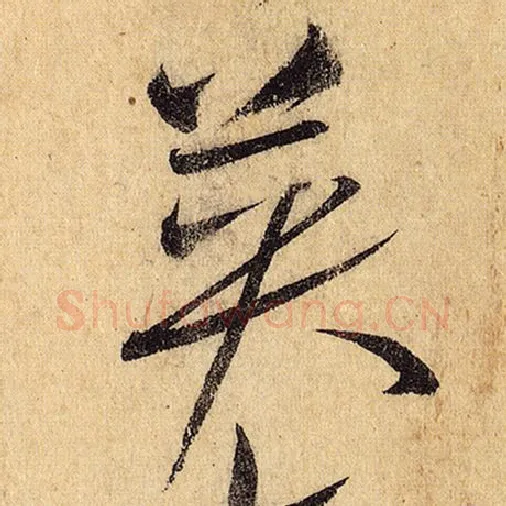 英
Shufawang.CN